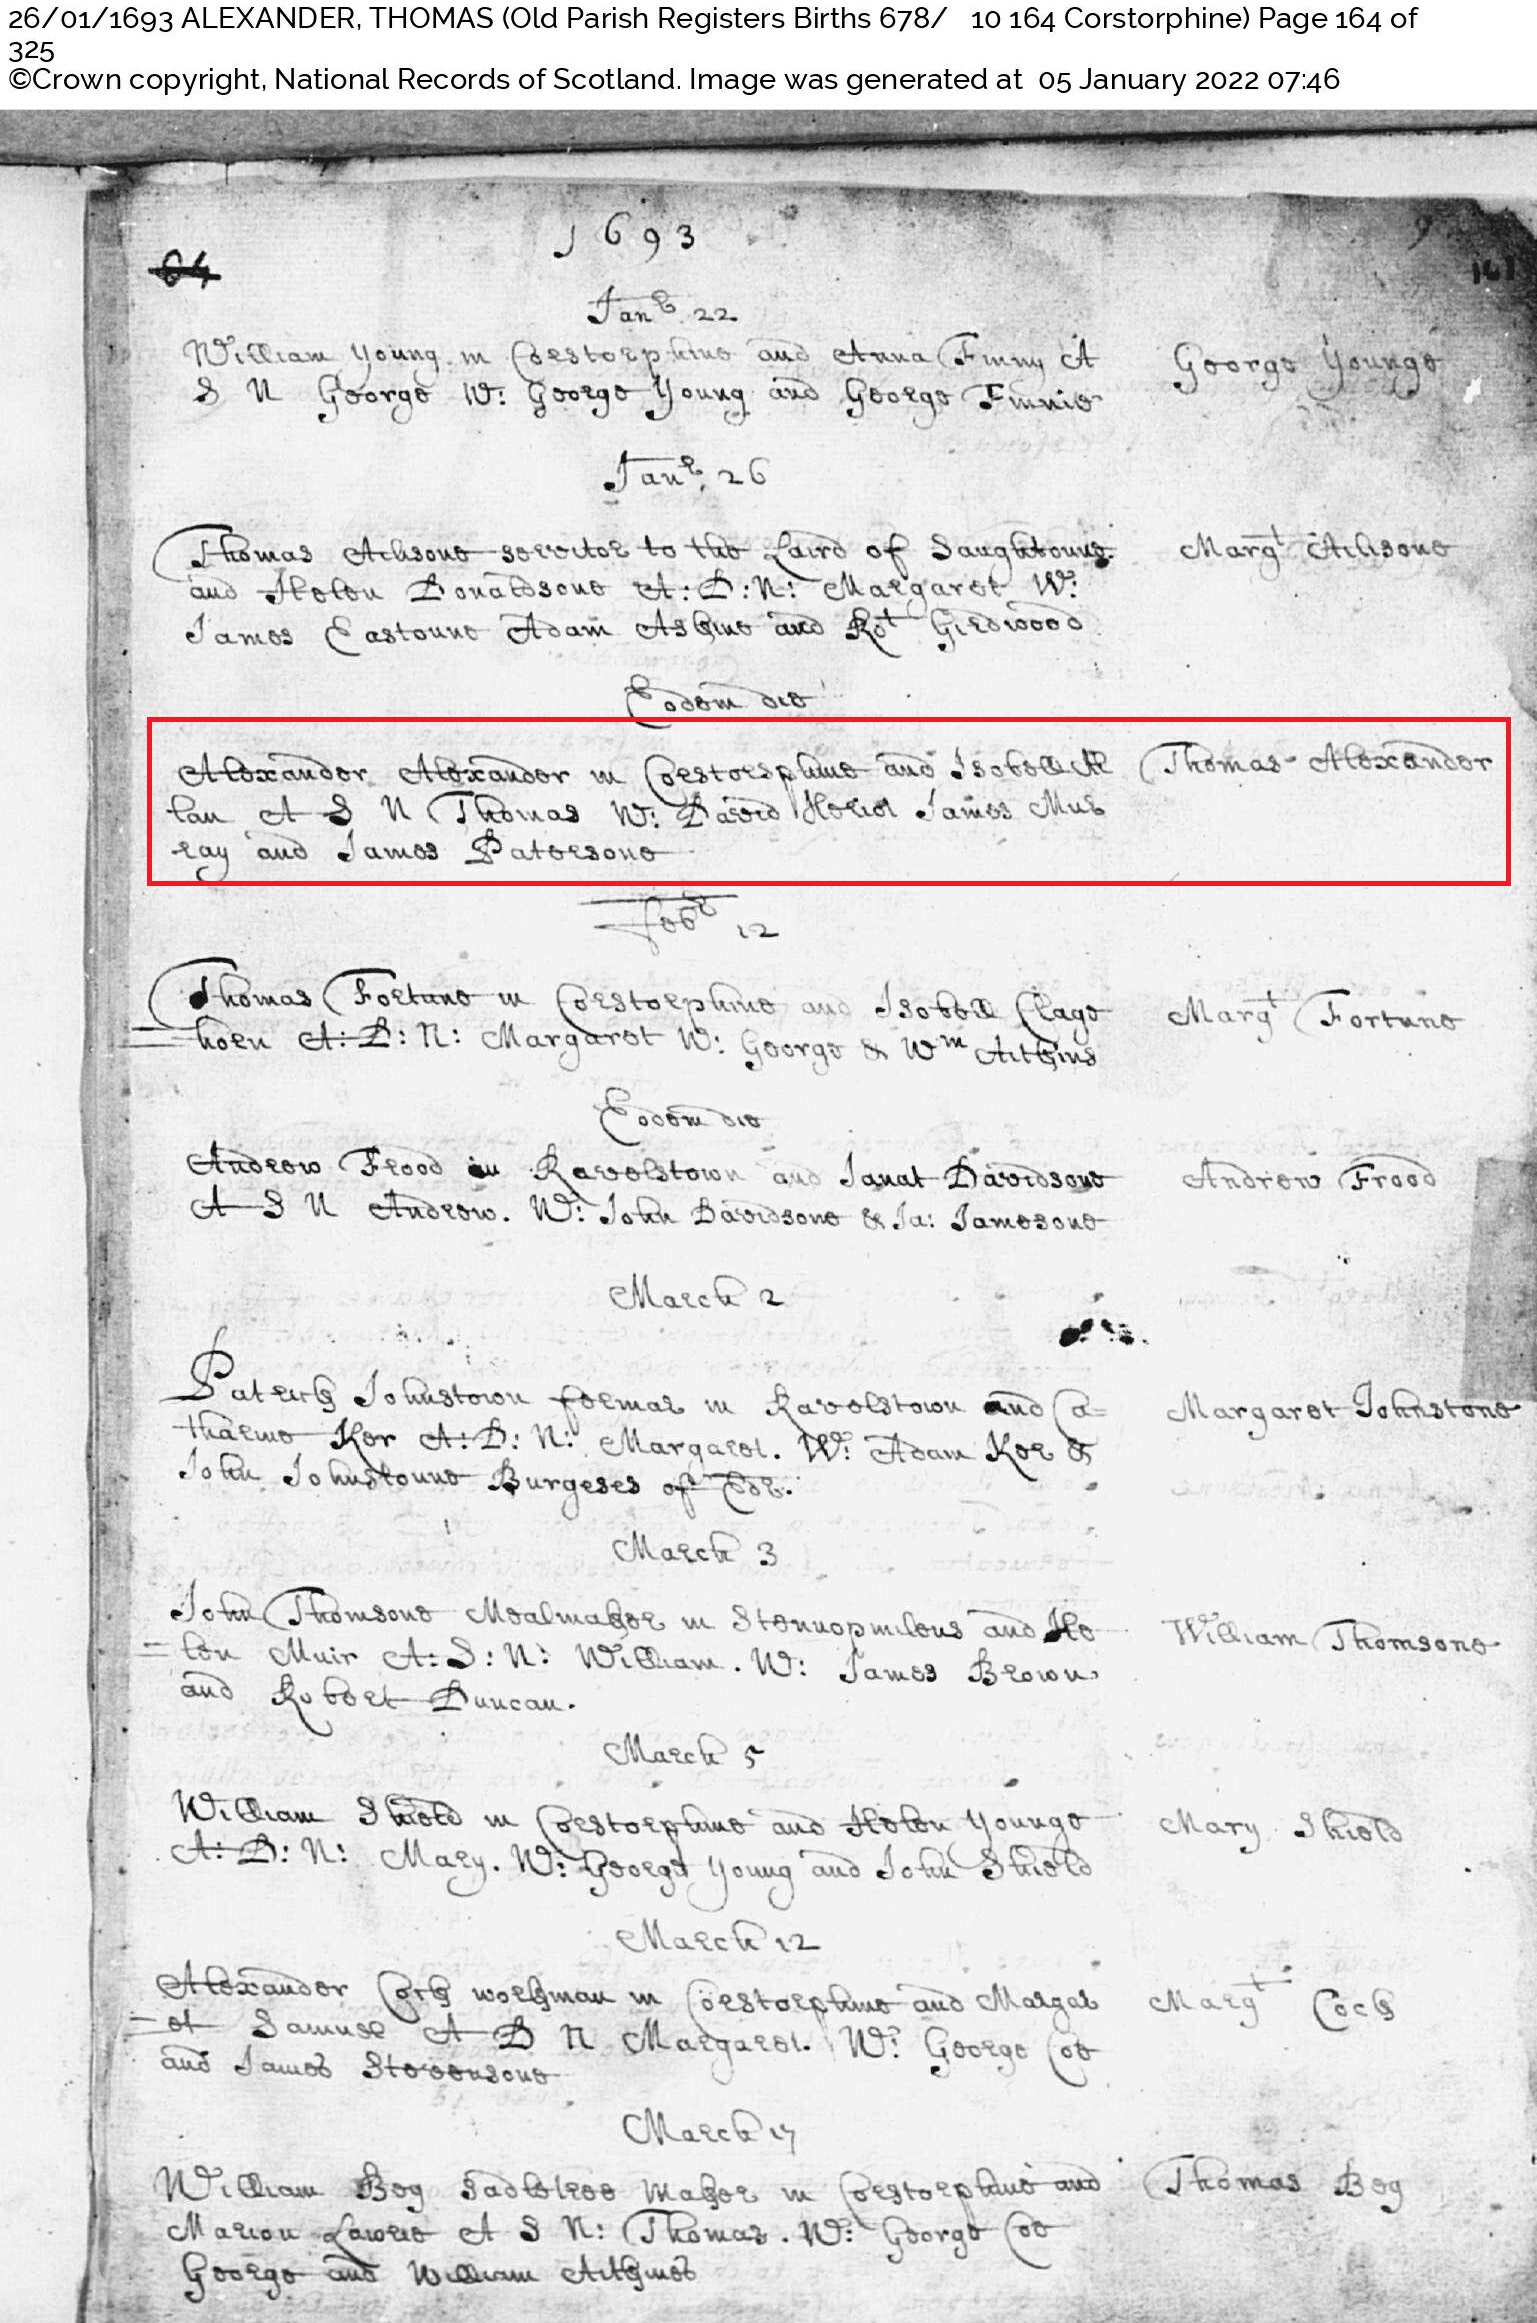 26/01/1693 ALEXANDER, THOMAS (Old Parish Registers Births 678/ 10 164 Corstorphine) Page 164 of
325
©Crown copyright, National Records of Scotland. Image was generated at 05 January 2022 07:46
1693
64
161
Janr 22
William Young in Corstorphine and Anna Finny A
S N George W: George Young and George Finnie
George Younge
Janr. 26
Thomas Achsone servitor to the Laird of Saughtoune
and Helen Donaldsone A: D: N: Margaret W:
James Eastoune Adam Askine and Rot Girdwood
Margt Achsone
Eodem die
Alexander Alexander in Corstorphine and Isobell Al
lan A S N Thomas W: David Heriot James Mur
ray and James Patersone
Thomas Alexander
febr 12
Thomas Fortune in Corstorphine and Isobell Clago
horn A: D: N: Margaret W: George & Wm Aitkins
Margt Fortune
Eodem die
Andrew Frood in Ravelstown and Janat Davidsone
A S N Andrew. W: John Davidsone & Ja: Jamesone
Andrew Frood
March 2
Patrick Johnstown fermar in Ravelstown and Ca=
tharine Ker A: D: N: Margaret. W: Adam Ker &
John Johnstoune Burgeses of Edr.
Margaret Johnstone
March 3
John Thomsone Mealmaker in Stennopmilens and He
=len Muir A: S: N: William. W: James Brown
and Robert Duncan.
William Thomsone
March 5
William Shield in Corstorphine and Helen Younge
A: D: N: Mary. W: George Young and John Shield
Mary Shield
March 12
Alexander Cock workman in Corstorphine and Margar
=et Samuel A D N Margaret. W: George Coo
and James Stevensone
Margt Cock
March 17
William Bog Sadletree maker in Corstorphine and
Marion Lawrie A S N: Thomas. W: George Coo
George and William Aitkines
Thomas Bog